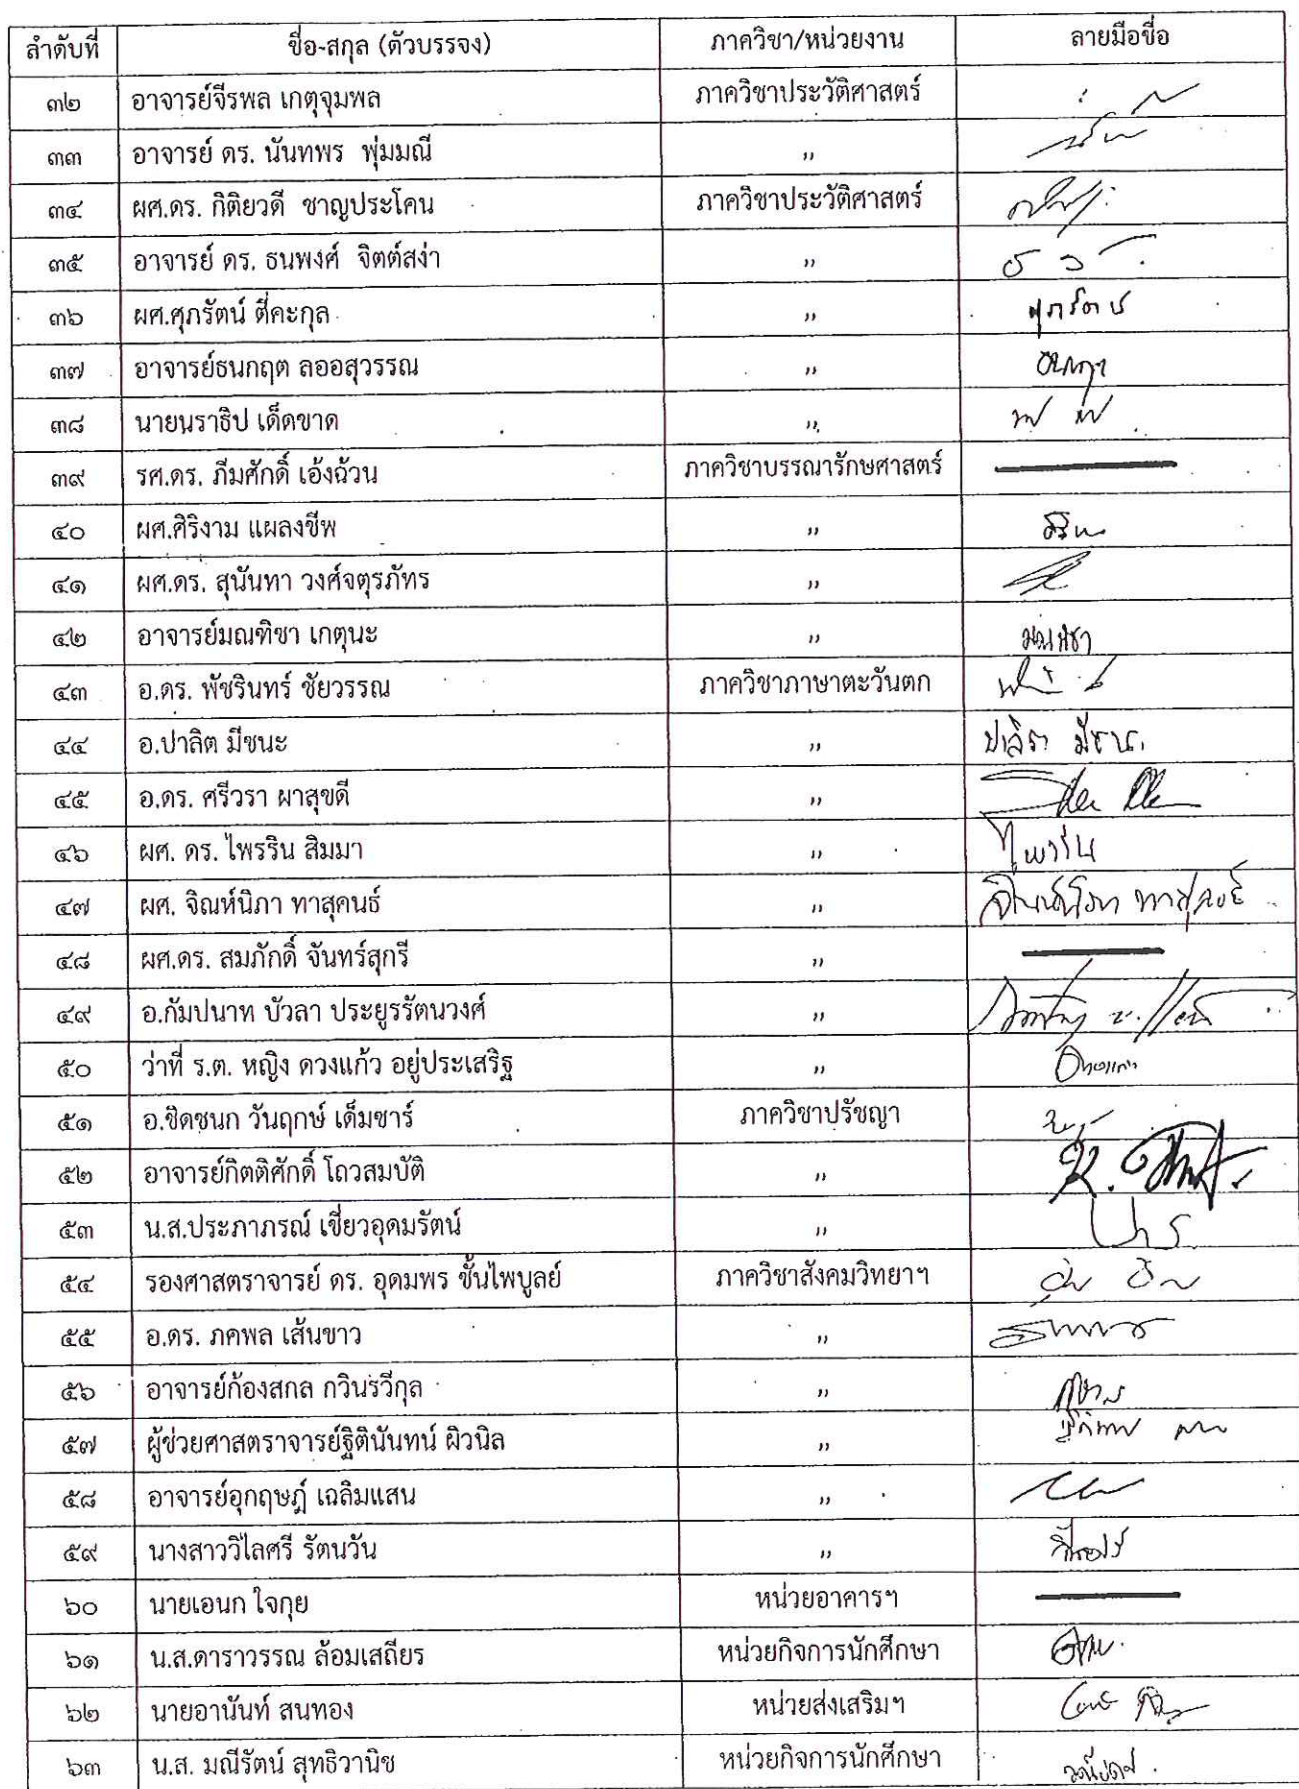 ลำดับที่ ชื่อ-สกุล (ตัวบรรจง) ภาควิชา/หน่วยงาน ลายมือชื่อ
๓๒ อาจารย์จีรพล เกตุจุมพล ภาควิชาประวัติศาสตร์
๓๓ อาจารย์ ดร. นันทพร พุ่มมณี ,,
๓๔ ผศ.ดร. กิติยวดี ชาญประโคน ภาควิชาประวัติศาสตร์
๓๕ อาจารย์ ดร. ธนพงศ์ จิตต์สง่า ,,
๓๖ ผศ.ศุภรัตน์ ตี่คะกุล ,, ศุภรัตน์
๓๗ อาจารย์ธนกฤต ลออสุวรรณ ,,
๓๘ นายนราธิป เด็ดขาด ,,
๓๙ รศ.ดร. ภีมศักดิ์ เอ้งฉ้วน ภาควิชาบรรณารักษศาสตร์
๔๐ ผศ.ศิริงาม แผลงชีพ ,,
๔๑ ผศ.ดร. สุนันทา วงศ์จตุรภัทร ,,
๔๒ อาจารย์มณฑิชา เกตุนะ ,, มณฑิชา
๔๓ อ.ดร. พัชรินทร์ ชัยวรรณ ภาควิชาภาษาตะวันตก
๔๔ อ.ปาลิต มีชนะ ,, ปาลิต มีชนะ
๔๕ อ.ดร. ศรีวรา ผาสุขดี ,,
๔๖ ผศ. ดร. ไพรริน สิมมา ,, ไพรริน
๔๗ ผศ. จิณห์นิภา ทาสุคนธ์ ,, จิณห์นิภา ทาสุคนธ์
๔๘ ผศ.ดร. สมภักดิ์ จันทร์สุกรี ,,
๔๙ อ.กัมปนาท บัวลา ประยูรรัตนวงศ์ ,,
๕๐ ว่าที่ ร.ต. หญิง ดวงแก้ว อยู่ประเสริฐ ,,
๕๑ อ.ชิดชนก วันฤกษ์ เด็มชาร์ ภาควิชาปรัชญา
๕๒ อาจารย์กิตติศักดิ์ โถวสมบัติ ,,
๕๓ น.ส.ประภาภรณ์ เชี่ยวอุดมรัตน์ ,,
๕๔ รองศาสตราจารย์ ดร. อุดมพร ชั้นไพบูลย์ ภาควิชาสังคมวิทยาฯ
๕๕ อ.ดร. ภคพล เส้นขาว ,,
๕๖ อาจารย์ก้องสกล กวินรวีกุล ,,
๕๗ ผู้ช่วยศาสตราจารย์ฐิตินันทน์ ผิวนิล ,,
๕๘ อาจารย์อุกฤษฎ์ เฉลิมแสน ,,
๕๙ นางสาววิไลศรี รัตนวัน ,,
๖๐ นายเอนก ใจกุย หน่วยอาคารฯ
๖๑ น.ส.ดาราวรรณ ล้อมเสถียร หน่วยกิจการนักศึกษา
๖๒ นายอานันท์ สนทอง หน่วยส่งเสริมฯ
๖๓ น.ส. มณีรัตน์ สุทธิวานิช หน่วยกิจการนักศึกษา